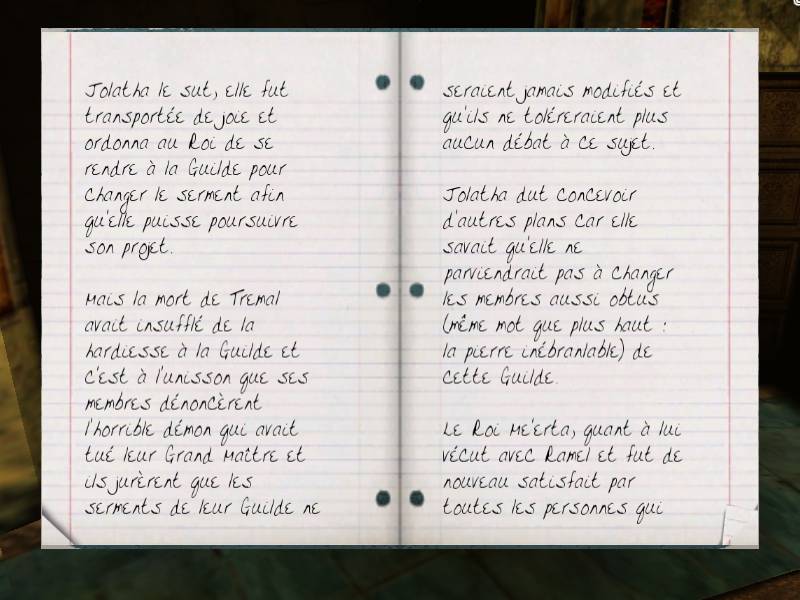 Jolatha le sut, elle fut
transportée de joie et
ordonna au Roi de se
rendre à la Guilde pour
changer le serment afin
qu'elle puisse poursuivre
son projet.
Mais la mort de Tremal
avait insufflé de la
hardiesse à la Guilde et
c'est à l'unisson que ses
membres dénoncèrent
l'horrible démon qui avait
tué leur Grand Maître et
ils jurèrent que les
serments de leur Guilde ne
seraient jamais modifiés et
qu'ils ne toléreraient plus
aucun débat à ce sujet.
Jolatha dut concevoir
d'autres plans car elle
savait qu'elle ne
parviendrait pas à changer
les membres aussi obtus
(même mot que plus haut :
la pierre inébranlable) de
cette Guilde.
Le Roi Me'erta, quant à lui
vécut avec Ramel et fut de
nouveau satisfait par
toutes les personnes qui